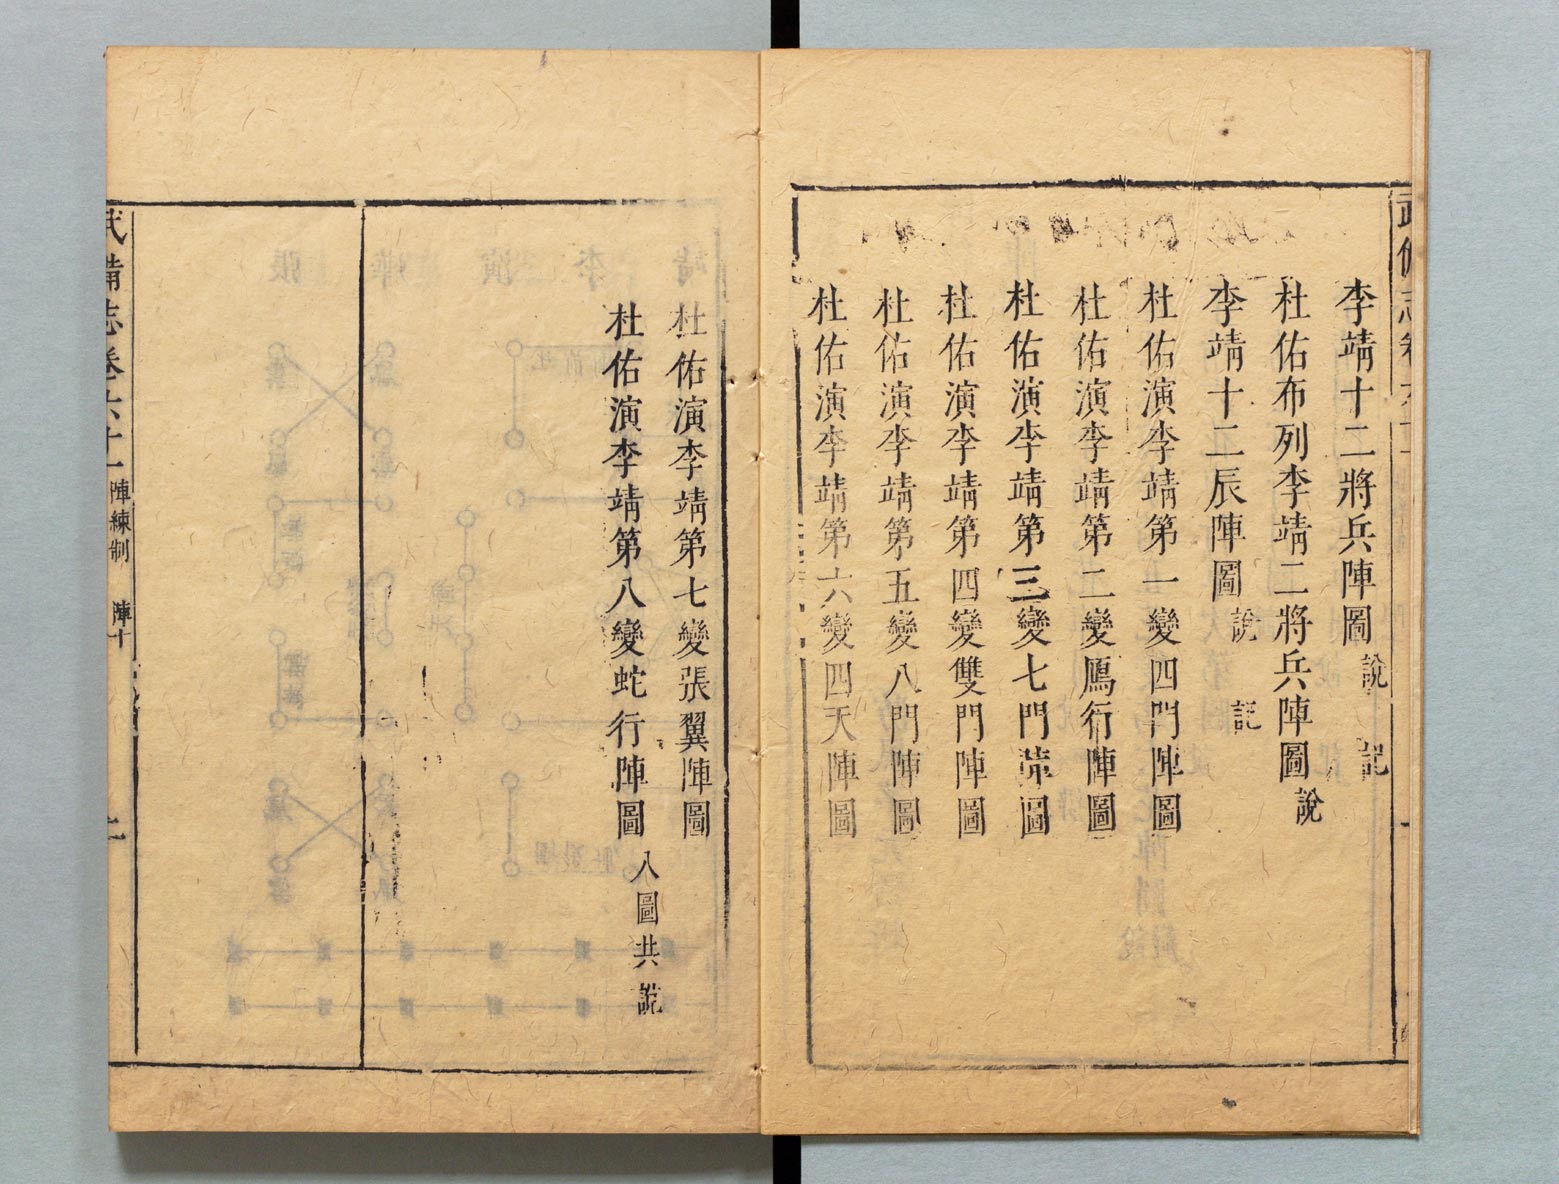 李靖十二將兵陣圖 說 記
杜佑布列李靖二將兵陣圖 說
李靖十二辰陣圖 說 記
杜佑演李靖第一變四門陣圖
杜佑演李靖第二變鴈行陣圖
杜佑演李靖第三變七門陣圖
杜佑演李靖第四變雙門陣圖
杜佑演李靖第五變八門陣圖
杜佑演李靖第六變四天陣圖
杜佑演李靖第七變張翼陣圖
杜佑演李靖第八變蛇行陣圖 八圖共說
武備志卷六十 陣練制 陣十